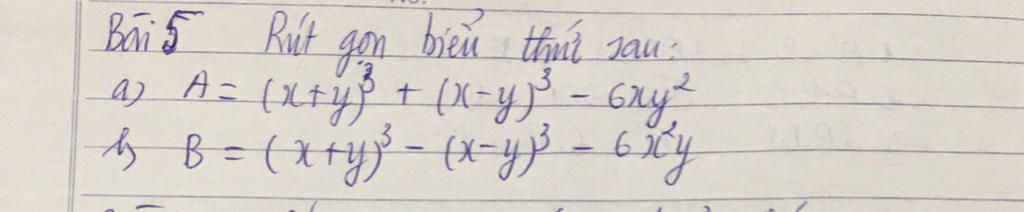 Bài 5 Rút gọn biểu thức sau:
a) A = (x+y)³ + (x-y)³ - 6xy²
b) B = (x+y)³ - (x-y)³ - 6x²y